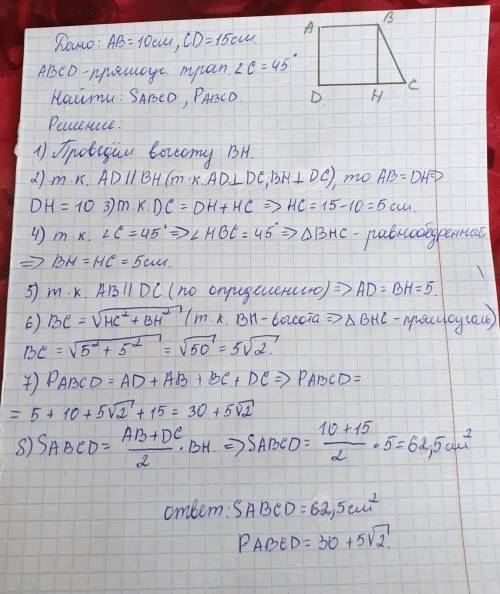 Дано: AB=10см, CD=15см.
ABCD-прямоуг. трап. ∠C=45°
Найти: SABCD, PABCD.
Решение:
A
B
D
H
C
1) Проведём высоту BH.
2) т.к. AD||BH (т.к. AD⊥DC, BH⊥DC), то AB=DH⇒
DH=10 3) т.к. DC=DH+HC ⇒ HC=15-10=5см.
4) т.к. ∠C=45°⇒∠HBC=45°⇒ΔBHC-равнобедренный
⇒ BH=HC=5см.
5) т.к. AB||DC (по определению)⇒AD=BH=5.
6) BC=√HC²+BH² (т.к. BH-высота⇒ΔBHC-прямоуголь)
BC=√5²+5² =√50=5√2.
7) PABCD=AD+AB+BC+DC⇒PABCD=
=5+10+5√2+15=30+5√2
8) SABCD=AB+DC/2·BH.⇒SABCD=10+15/2·5=62,5см²
ответ: SABCD=62,5см²
PABCD=30+5√2.